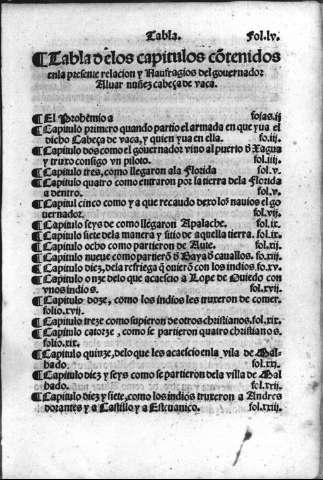 Tabla. Fol.lv.
¶Tabla d̄los capitulos cõtenidos
enla presente relacion y Naufragios del gouernador
Aluar nuñez cabeça de vaca.
¶El Prohēmio a fojas.ij
¶Capitulo primero quando partio el armada en que yua el
dicho Cabeça de vaca, y quien yua en ella. fo.iij.
¶Capitulo dos como el gouernador vino al puerto d̄ Xagua
y truxo consigo vn piloto. fol.iiij.
¶Capitulo tres, como llegaron ala Florida fol.v.
¶Capitulo quatro como entraron por la tierra dela Florida
a dentro. fol.v.
¶Capitul cinco como ya que recaudo dexo los nauios el go
uernador. fol.vij.
¶Capitulo seys de como llegaron Apalache. fol.ix.
¶Capitulo siete dela manera y sitio de aquella tierra. fol.ix
¶Capitulo ocho como partieron de Aute. fol.xij.
¶Capitulo nueue como partierõ d̄ Baya d̄ cauallos. fo.xiij.
¶Capitulo diez, dela refriega q̄ ouierõ con los indios fo.xv.
¶Capitulo onze delo que acaescio a Lope de Ouiedo con
vnos indios. fol.xvij.
¶Capitulo doze, como los indios les truxeron de comer.
folio.xvij.
¶Capitulo treze como supieron de otros christianos.fol.xix.
¶Capitulo catorze, como se partieron quatro christianos.
folio.xix.
¶Capitulo quinze, delo que les acaescio enla vila de Mal-
hado. fol.xx.
¶Capitulo diez y seys como se partieron dela villa de Mal
hado. fol.xxij.
¶Capitulo diez y siete, como los indios truxeron a Andres
dorantes y a Castillo y a Esteuanico. fol.xxiij.